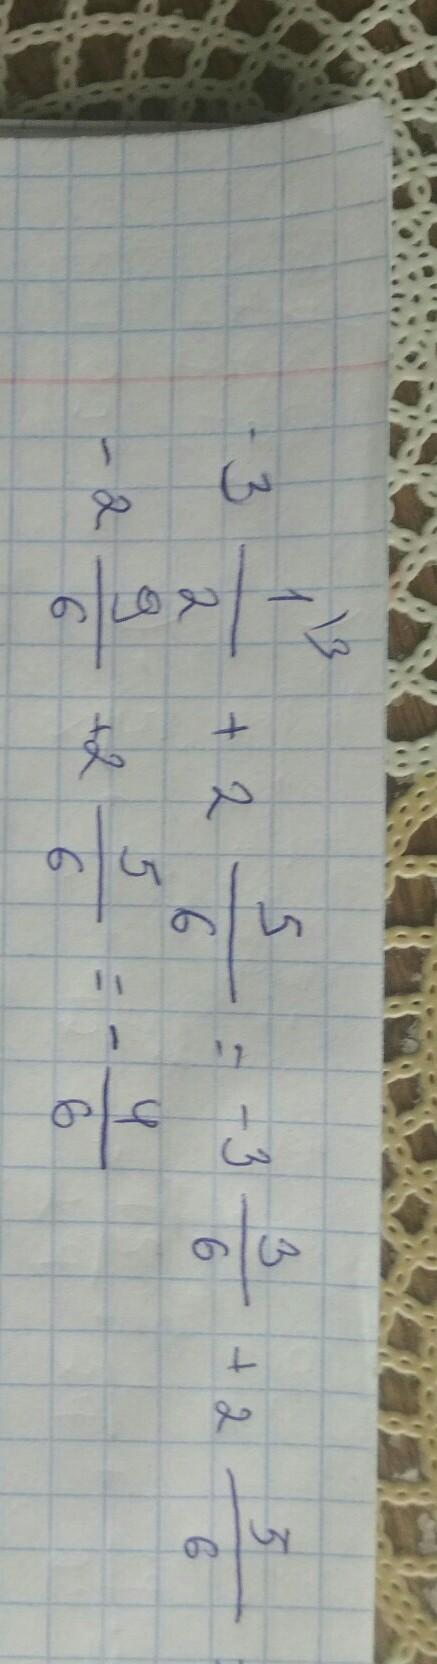 -3 1\3/2 + 2 5/6 = -3 3/6 + 2 5/6
-2 9/6 +2 5/6 = - 4/6